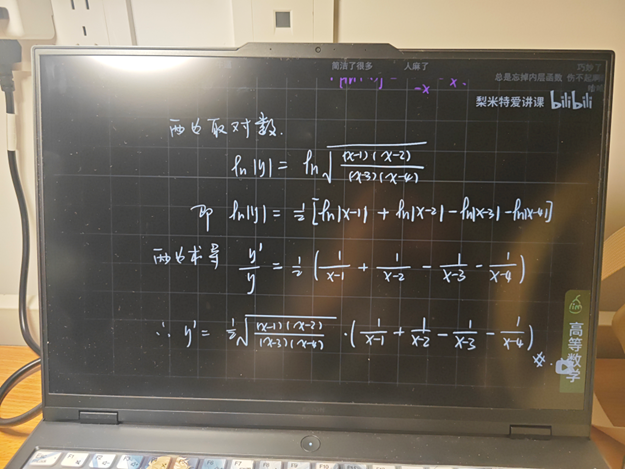 简洁了很多 人麻了 巧妙了
总是忘掉内层函数
梨米特爱讲课 bilibili
两边取对数.
ln|y| = ln√((x-1)(x-2)/(x-3)(x-4))
即 ln|y| = 1/2 [ln|x-1| + ln|x-2| - ln|x-3| - ln|x-4|]
两边求导 y'/y = 1/2 (1/(x-1) + 1/(x-2) - 1/(x-3) - 1/(x-4))
∴ y' = 1/2 √((x-1)(x-2)/(x-3)(x-4)) · (1/(x-1) + 1/(x-2) - 1/(x-3) - 1/(x-4))
高等数学